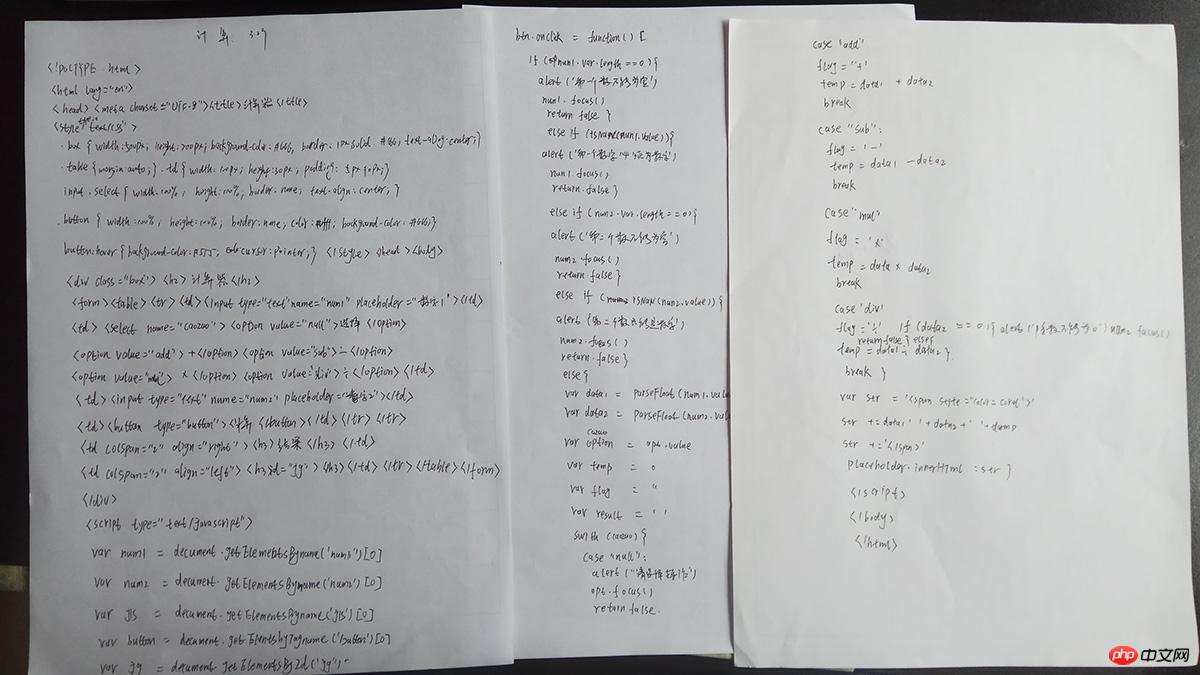 计算 3.29
<!DOCTYPE html>
<html lang="en">
<head><meta charset="UTF-8"><title>计算器</title>
<style type="text/css">
.box { width:500px; height:200px; background-color:#666, border: 1px solid #666, text-align:center;}
table{margin:auto;} td{width:100px; height:30px; padding: 5px 10px;}
input.select { width:100%; height:100%, border:none, text-align:center, }
button { width:100%; height:100%; border:none, color:#fff; background-color:#666;}
button:hover { background-color: cursor:pointer,} </style> </head> <body>
<div class="box"> <h2>计算器</h2>
<form><table><tr><td><input type="text" name="num1" placeholder="数字1"></td>
<td><select name="caozuo"><option value="null">选择</option>
<option value="add">+</option><option value="sub">-</option>
<option value="mul">×</option><option value="div">÷</option></td>
<td><input type="text" nume="num2" placeholder="数字2"></td>
<td><button type="button">计算</button></td></tr></tr>
<td colspan="2" align="right"><h3>结果</h3></td>
<td colspan="2" align="left"><h3 id="jg"><h3></td></tr></table></form>
</div>
<script type="text/javascript">
var num1 = decument.getElementsByname('num1')[0]
var num2 = decument.getElementsByname('num2')[0]
var = decument.getElementsByname( )[0]
var button = decument. ('button')[0]
var jg = decument.getElementsById('jg')
btn.onclick = function() {
if (num1.var.length == 0) {
alert('第一个数不能为空')
num1.focus()
return false }
else if (isNaN(num1.value)){
alert('第一个数字必须为数字')
num1.focus()
return.false }
else if (num2.var.length == 0){
alert('第二个数不能为空')
num2.focus()
return false }
else if ( isNaN(num2.value)) {
alert(
num2.focus()
return.false }
else {
var data1 = parseFloat(num1.valu
var data2 = parseFloat(num2.valu
var option = opt.value
var temp = 0
var flag = ''
var result = ' '
swith (caozuo) {
case "null":
alert(
opt.focus()
return false.
case 'add'
flag = '+'
temp = data1 + data2
break
case "sub":
flag = '-'
temp = data1 - data2
break
case "mul"
flag = '×'
temp = data × data2
break
case 'div'
flag = '÷' if (data2 == 0){ alert( ) num2.focus()
return false } else{
temp = data1 ÷ data2 }
break }
var ser = '<span style="color= coral">'
ser += data1 ' ' + data2 + ' '
str += '</span>'
placeholder.innerHtml = ser }
</script>
</body>
</html>
php中文网